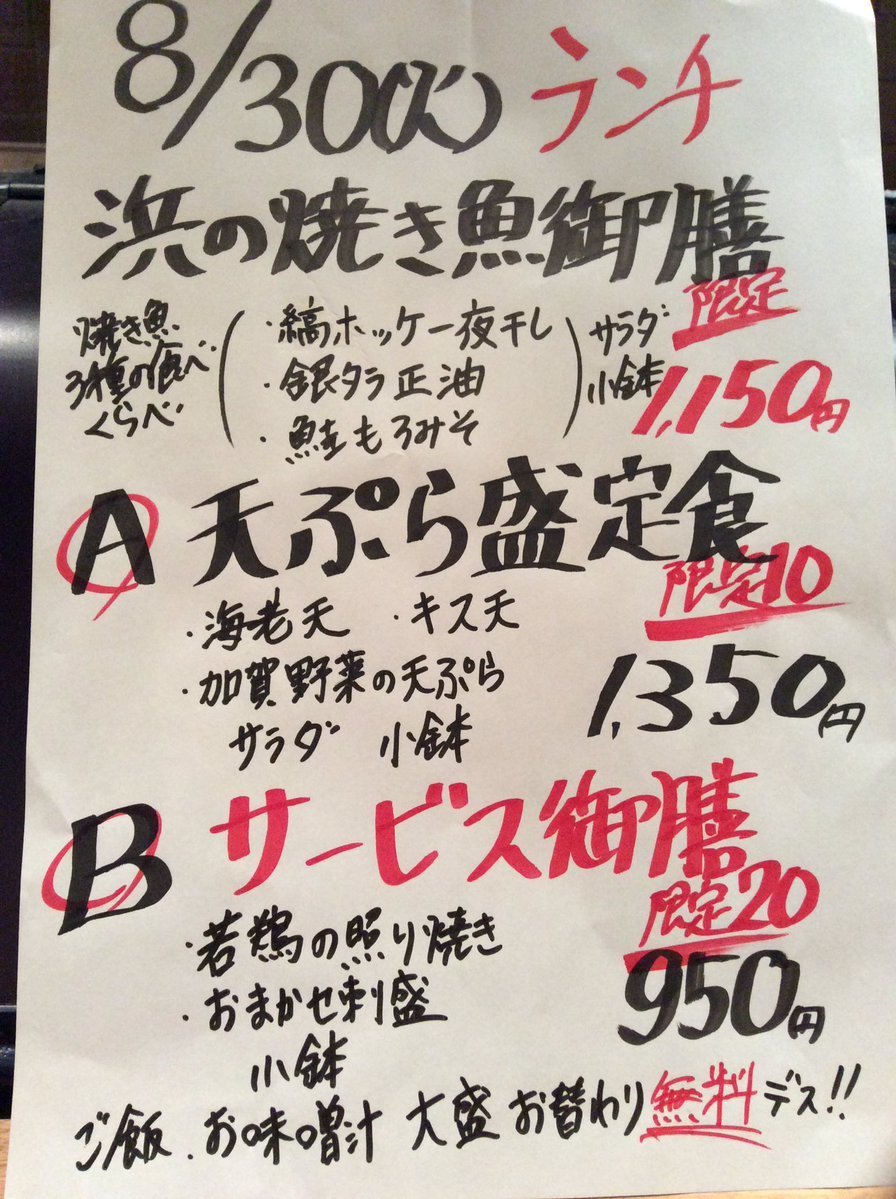 8/30(火) ランチ
浜の焼き魚御膳
限定
焼き魚
3種の食べ
くらべ
・縞ホッケ一夜干し
・銀タラ正油
・鮭もろみそ
サラダ
小鉢
1,150円
A 天ぷら盛定食
限定10
・海老天 ・キス天
・加賀野菜の天ぷら
サラダ 小鉢
1,350円
B サービス御膳
限定20
・若鶏の照り焼き
・おまかせ刺盛
小鉢
950円
ご飯、お味噌汁 大盛 お替わり無料デス!!